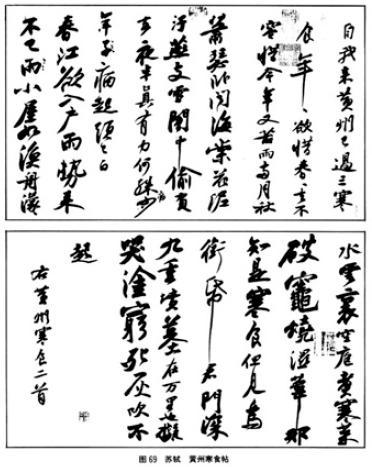 自我来黄州已過三寒
食年〻欲惜春〻去不
容惜今年又苦雨兩月秋
蕭瑟卧聞海棠花泥
汙燕支雪闇中偷負
去夜半真有力何殊病少
年子病起頭已白
春江欲入戶雨勢来
不已雨小屋如漁舟濛〻
水雲裏空庖煮寒菜
破竈燒溼葦那
知是寒食但見烏
銜帋君門深
九重墳墓在万里也擬
哭塗窮死灰吹不
起
右黄州寒食二首
图69 苏轼 黄州寒食帖